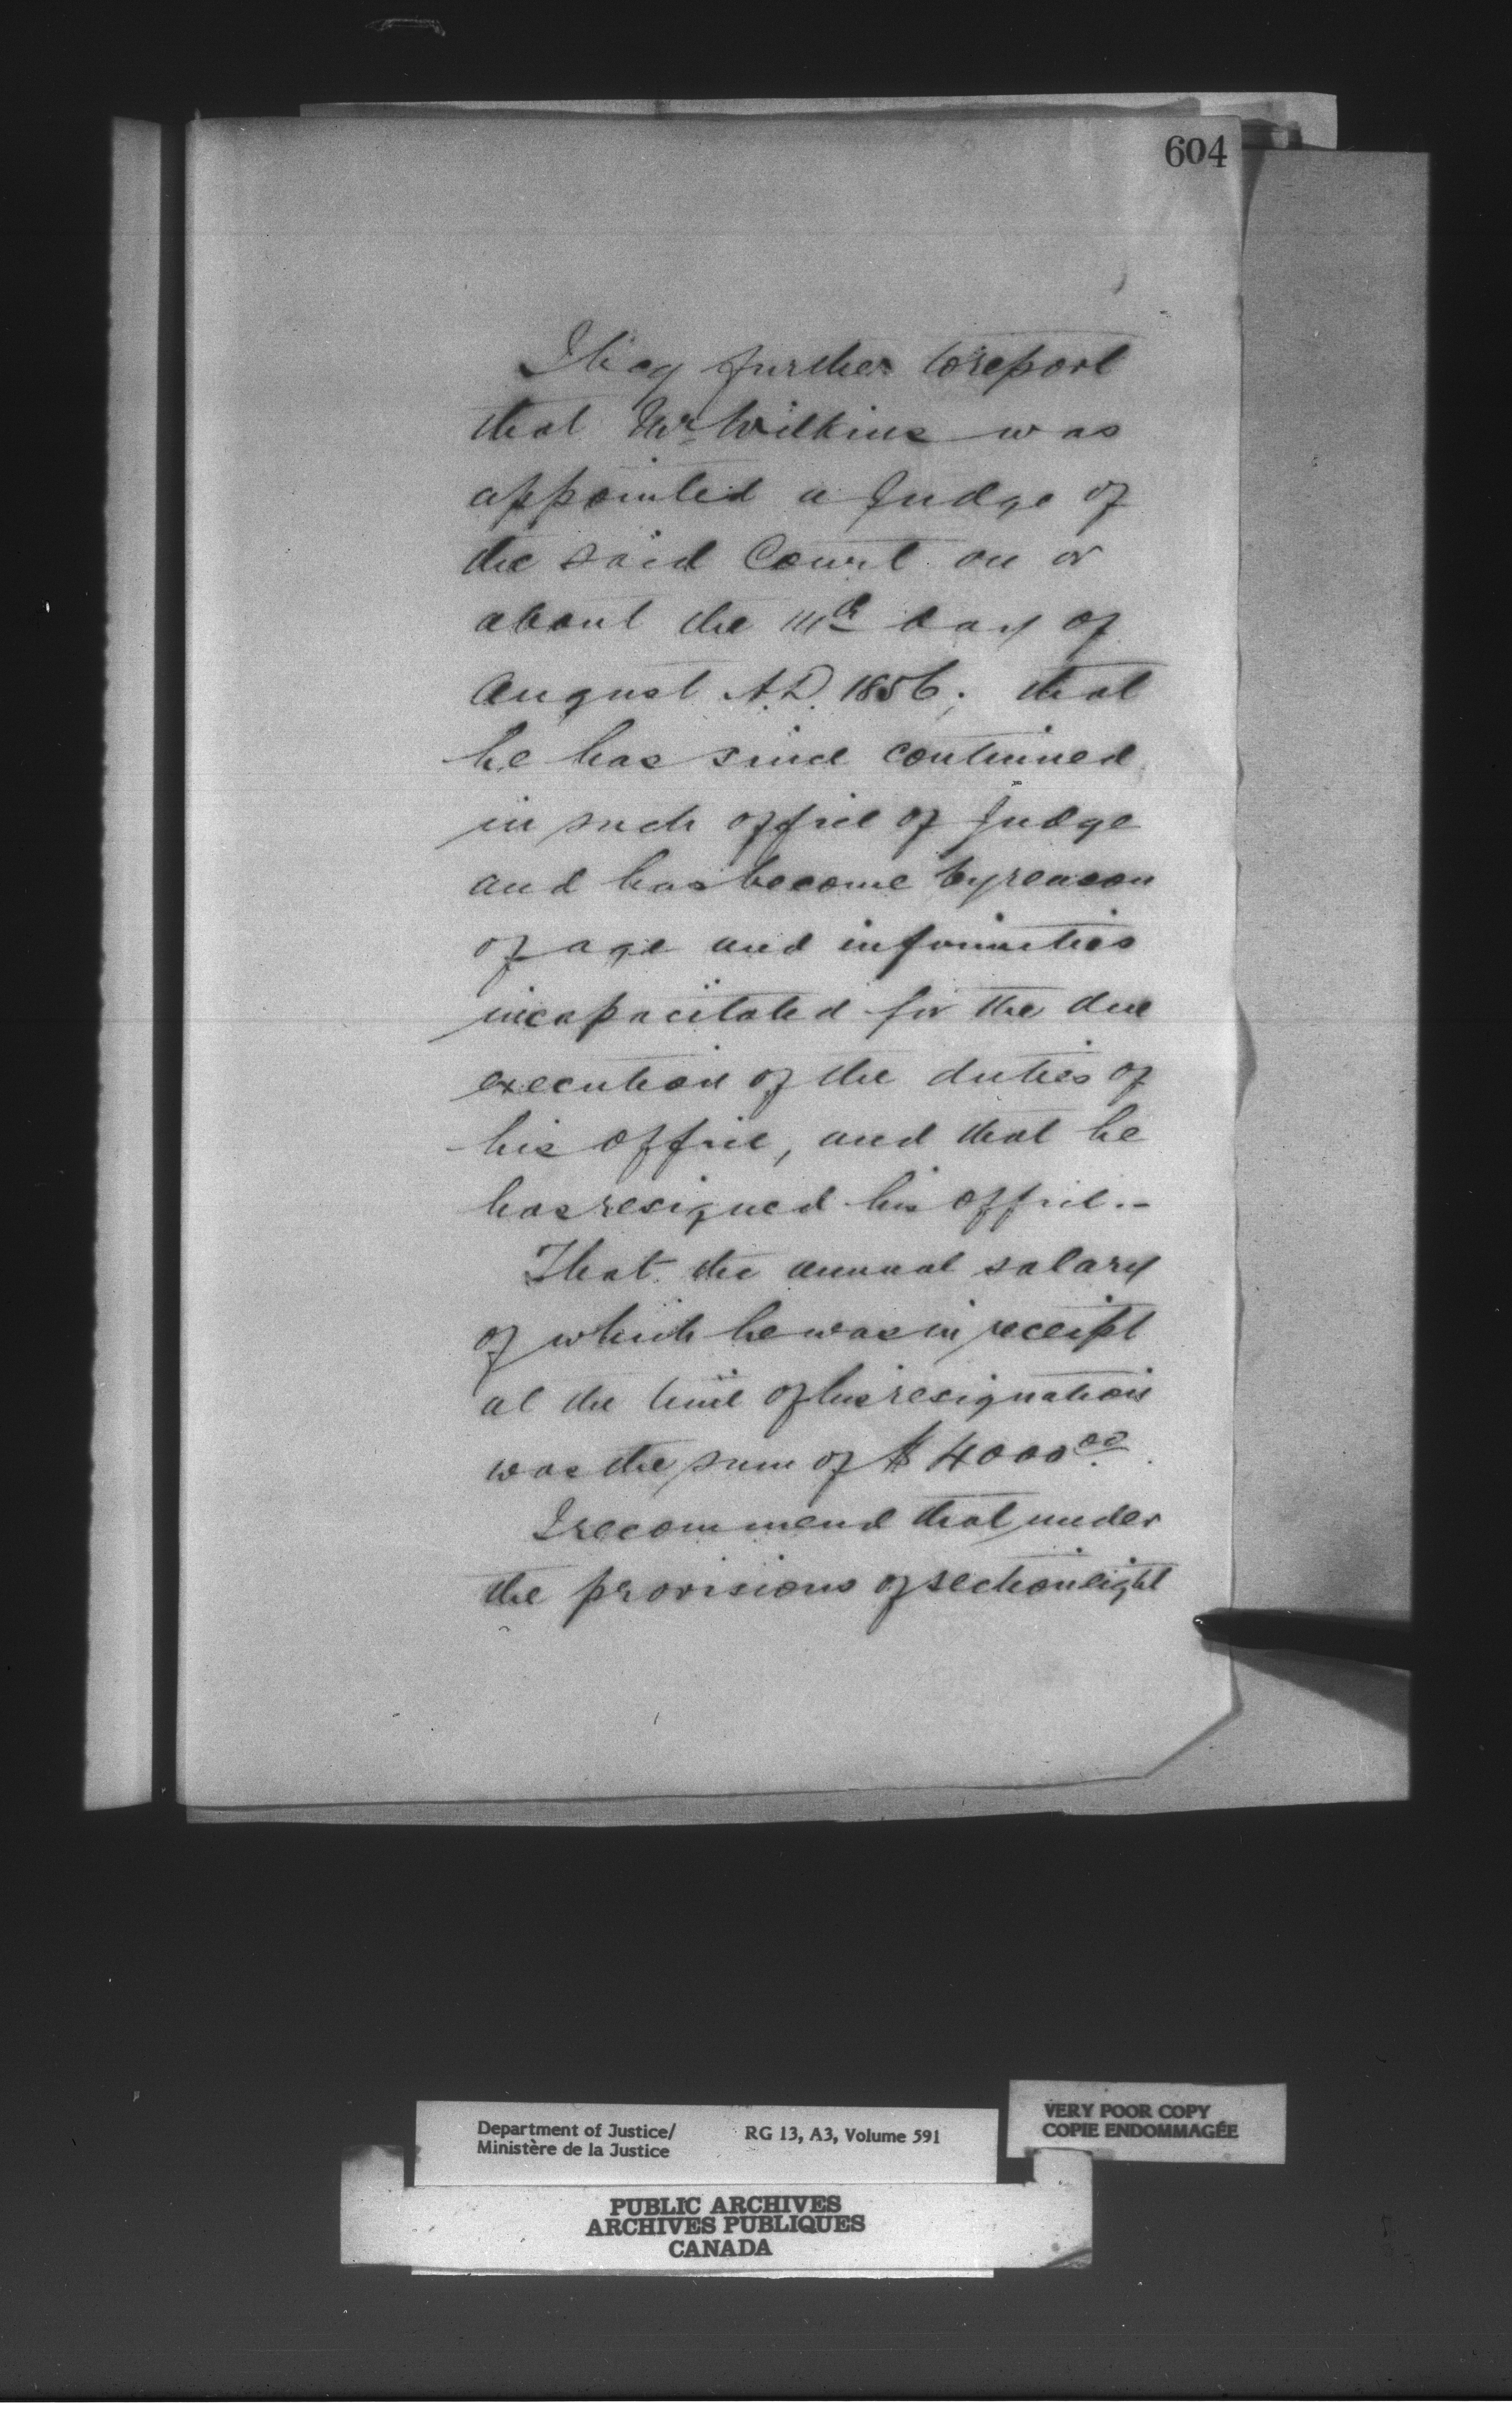 604
I beg further to report
that Mr Wilkins was
appointed a Judge of
the said Court on or
about the 11th day of
August A.D. 1856; that
he has since continued
in such office of Judge
and has become by reason
of age and infirmities
incapacitated for the due
execution of the duties of
his office, and that he
has resigned his office.-
That the annual salary
of which he was in receipt
at the time of his resignation
was the sum of $4000 00.
I recommend that under
the provisions of section eight
Department of Justice/ RG 13, A3, Volume 591
Ministère de la Justice
VERY POOR COPY
COPIE ENDOMMAGÉE
PUBLIC ARCHIVES
ARCHIVES PUBLIQUES
CANADA